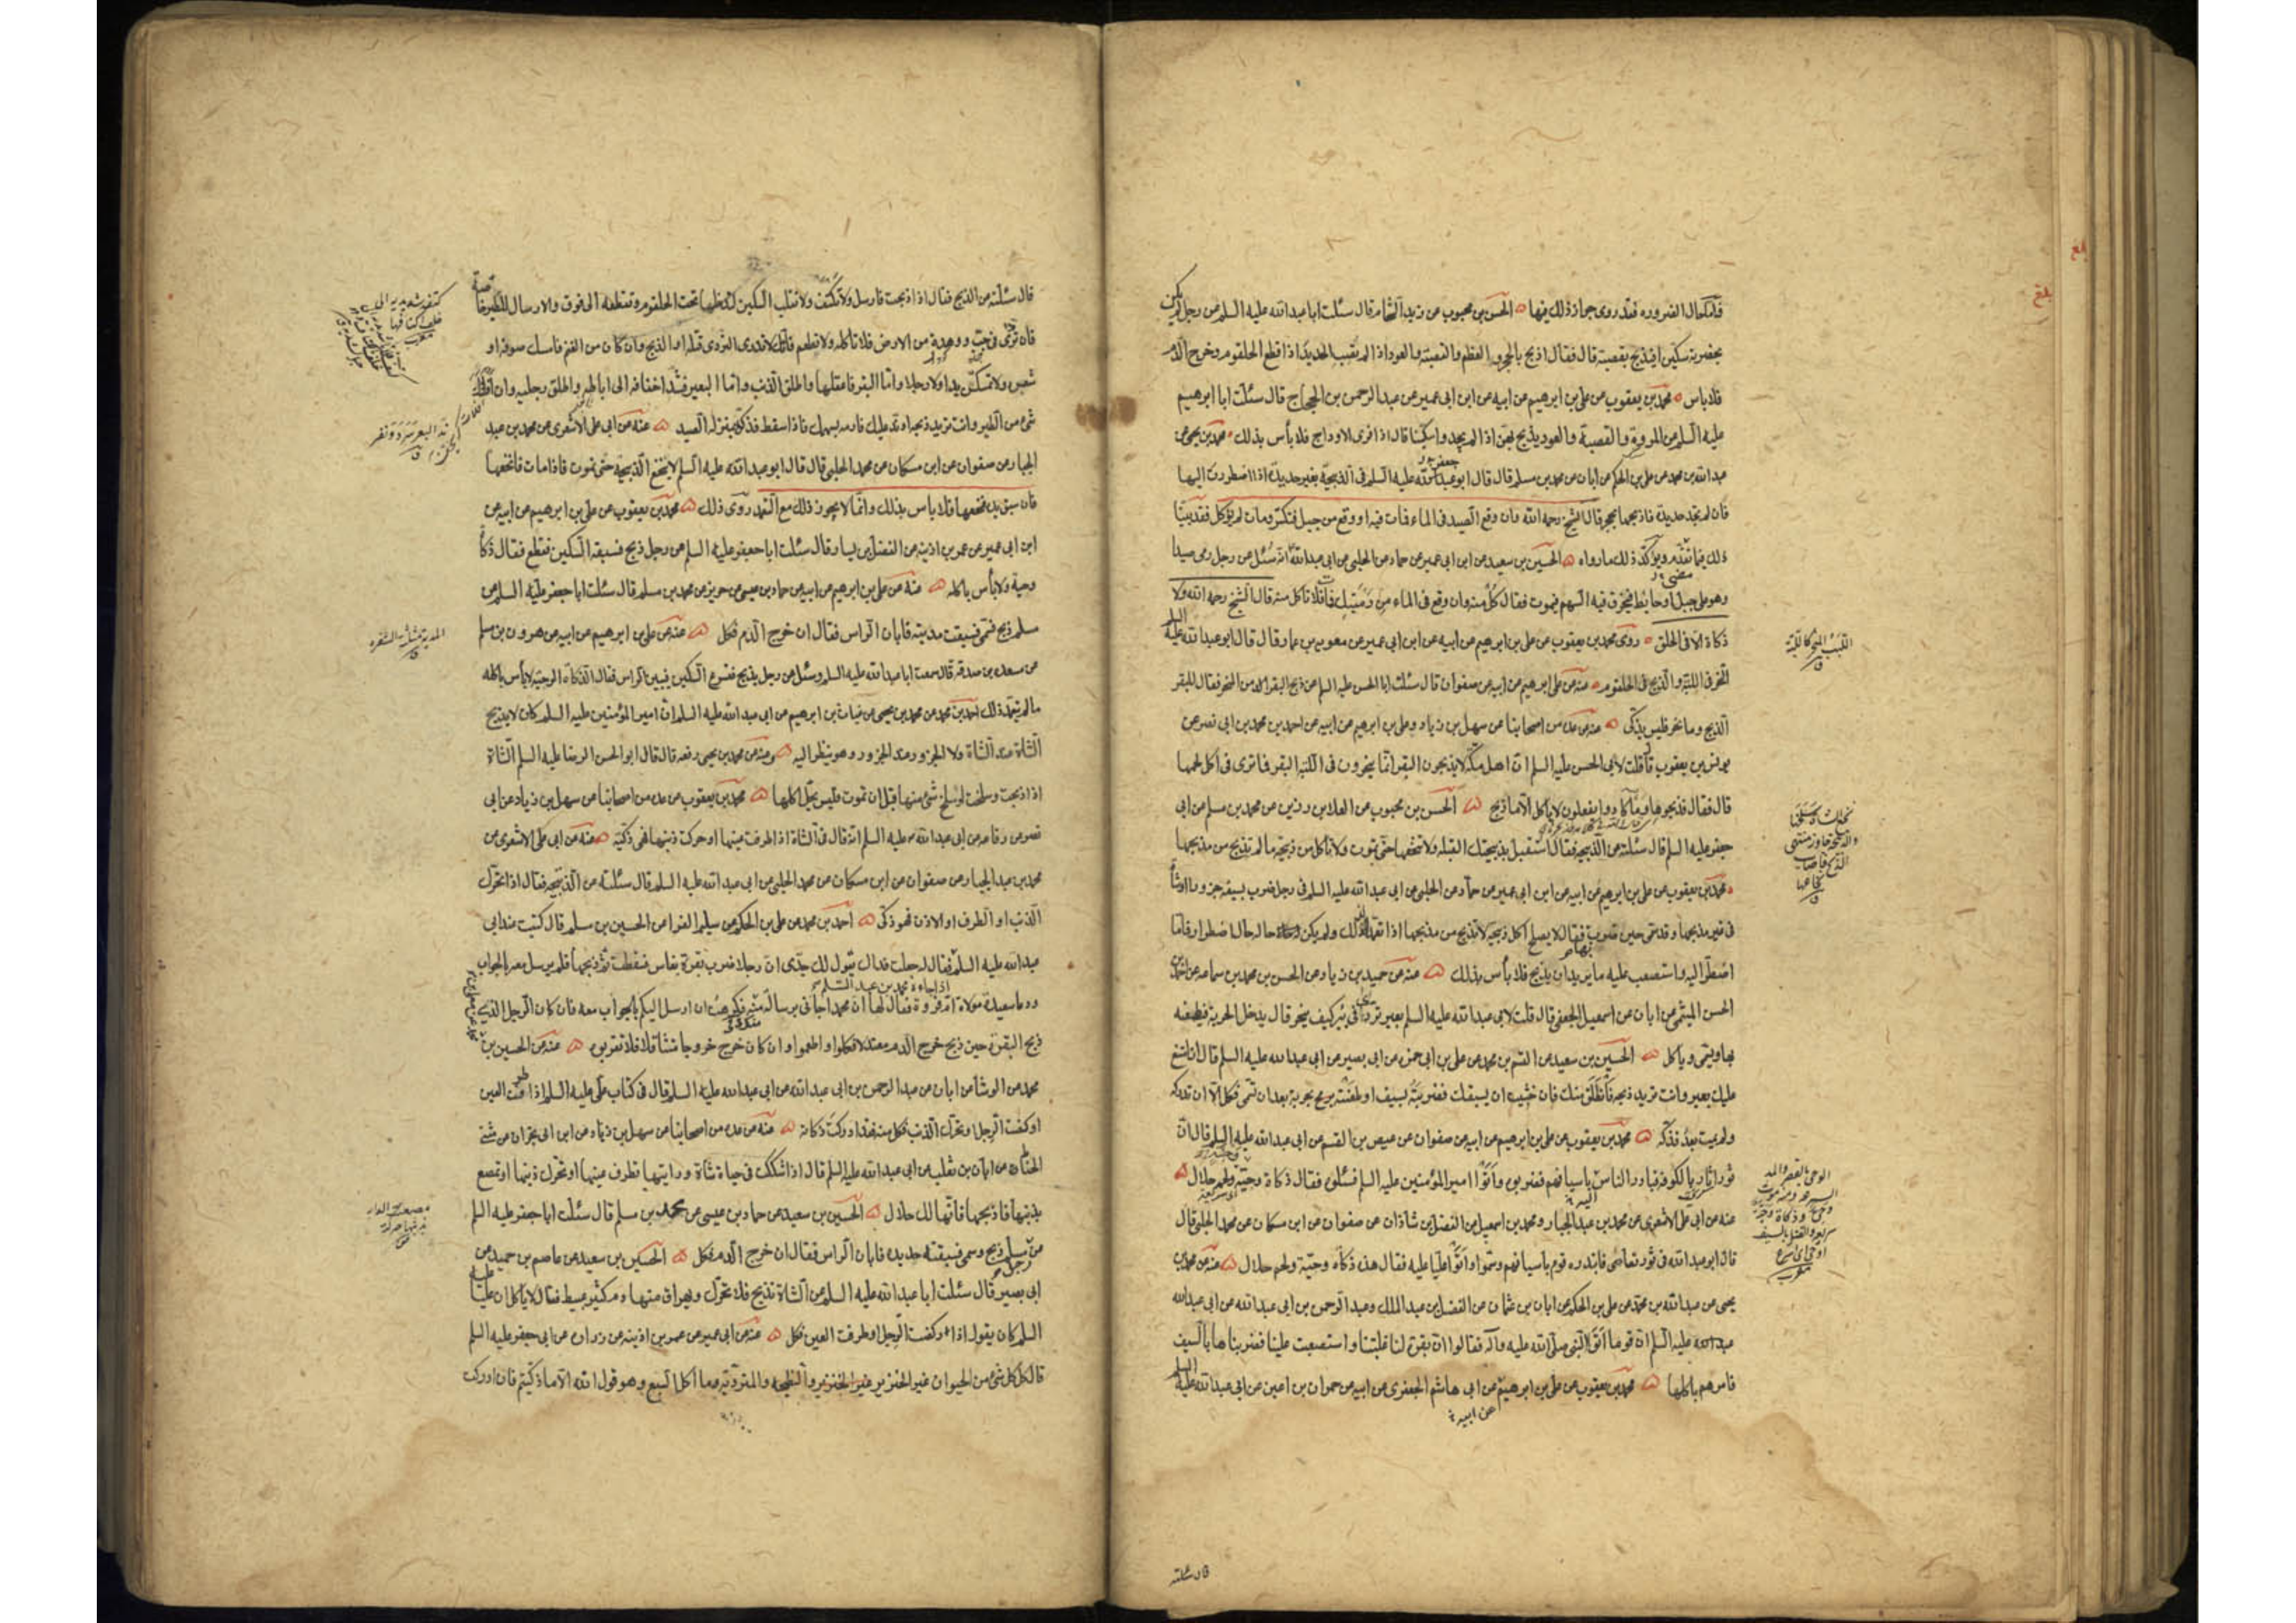 فأما حال الضرورة فقد روى جواز ذلك فيها الحسن بن محبوب عن زيد الشحام قال سئلت ابا عبد الله عليه السلم عن رجل لم يكن
بحضرته سكين ايذبح بقصبة قال فقال اذبح بالحجر و العظم والقصبة والعود اذا لم تصب الحديد اذا قطع الحلقوم وخرج الدم
فلا باس محمد بن يعقوب عن علي بن ابرهيم عن ابيه عن ابن ابي عمير عن عبد الرحمن بن الحجاج قال سئلت ابا ابرهيم
عليه السلم عن المروة والقصبة والعود يذبح بهن اذا لم يجدوا سكينا قال اذا فرى الاوداج فلا بأس بذلك محمد بن يحيى عن
عبد الله بن محمد عن علي بن الحكم عن ابان عن محمد بن مسلم قال قال ابو جعفر عليه السلم في الذبيحة بغير حديدة اذا اضطررت اليها
فان لم تجد حديدة فاذبحها بحجر قال الشيخ رحمه الله وان وقع الصيد في الماء فمات فيه او وقع من جبل فتكسر ومات لم يؤكل فقد بينا
ذلك فيما تقدم ويؤكد ذلك ما رواه الحسين بن سعيد عن ابن ابي عمير عن حماد عن الحلبي عن ابي عبد الله انه سئل عن رجل رمى صيدا
وهو على جبل او حايط فيخرق فيه السهم فيموت فقال كل منه وان وقع في الماء من رميتك فمات فلا تاكل منه قال الشيخ رحمه الله ولا
ذكاة الا في الحلق روى محمد بن يعقوب عن علي بن ابرهيم عن ابيه عن ابن ابي عمير عن معوية بن عمار قال قال ابو عبد الله عليه السلم
النحر في اللبة والذبح في الحلقوم عنه عن علي بن ابرهيم عن ابيه عن صفوان قال سئلت ابا الحسن عليه السلم عن ذبح البقر في المنحر فقال للبقر
الذبح وما نحر فليس بذكي عنه عن عدة من اصحابنا عن سهل بن زياد وعلي بن ابرهيم عن ابيه عن احمد بن محمد بن ابي نصر عن
يونس بن يعقوب قال قلت لابي الحسن عليه السلم ان اهل مكة لا يذبحون البقر انما ينحرون في اللبة البقر فما ترى في اكل لحمها
قال فقال فذبحوها وما كادوا يفعلون لا ياكل الا ما ذبح الحسن بن محبوب عن العلا بن رزين عن محمد بن مسلم عن ابي
جعفر عليه السلم قال سئلته عن الذبيحة فقال استقبل بذبيحتك القبلة ولا تنخعها حتى تموت ولا تأكل من ذبيحة ما لم تذبح من مذبحها
محمد بن يعقوب عن علي بن ابرهيم عن ابيه عن ابن ابي عمير عن حماد عن الحلبي عن ابي عبد الله عليه السلم في رجل ضرب بسيفه جزورا او شاة
في غير مذبحها وقد سمى حين ضرب فقال لا يصلح اكل ذبيحة لا تذبح من مذبحها اذا تعمد لذلك ولم يكن حاله حال اضطرار فاما
اضطر اليه واستصعب عليه ما يريد ان يذبح فلا بأس بذلك عنه عن حميد بن زياد عن الحسن بن محمد بن سماعة عن احمد بن
الحسن الميثمي عن ابان عن اسمعيل الجعفي قال قلت لابي عبد الله عليه السلم بعير تردى في بئر كيف ينحر قال يدخل الحربة فيطعنه
بها ويسمى وياكل الحسين بن سعيد عن القسم بن محمد عن علي بن ابي حمزة عن ابي بصير عن ابي عبد الله عليه السلم قال ان امتنع
عليك بعير وانت تريد ذبحه فانطلق منك فان خشيت ان يسبقك فضربته بسيف او طعنته برمح بحربة بعد ان تسمى فكل الا ان تدركه
ولم يمت بعد فذكه محمد بن يعقوب عن علي بن ابرهيم عن ابيه عن صفوان عن عيص بن القسم عن ابي عبد الله عليه السلم قال ان
ثورا ثار بالكوفة فبادر الناس باسيافهم فضربوه واتوا امير المؤمنين عليه السلم فسئلوه فقال ذكاة وحية ولحم حلال
عنه عن ابي علي الاشعري عن محمد بن عبد الجبار ومحمد بن اسمعيل عن الفضل بن شاذان عن صفوان عن ابن مسكان عن محمد الحلبي قال
قال ابو عبد الله في ثور تعاصى فابتدره قوم باسيافهم وسموا واتوا عليا عليه فقال هذه ذكاة وحية ولحم حلال عنه عن محمد بن
يحيى عن عبد الله بن محمد عن علي بن الحكم عن ابان بن عثمان عن الفضل بن عبد الملك وعبد الرحمن بن ابي عبد الله عن ابي عبد الله
عليه السلم ان قوما اتوا النبي صلى الله عليه وآله فقالوا ان بقرة لنا غلبتنا واستصعبت علينا فضربناها بالسيف
فامرهم باكلها محمد بن يعقوب عن علي بن ابرهيم عن ابي هاشم الجعفري عن ابيه عن حمران بن اعين عن ابي عبد الله عليه السلم
عن ابيه
قال سئلته
بلغ
قال سئلته عن الذبح فقال اذا ذبحت فارسل ولا تكتف ولا تقلب السكين لتدخلها تحت الحلقوم وتقطعه الى فوق والارسال للطير خاصة
فان تردى في جب او وهدة من الارض فلا تاكله ولا تطعم فانك لا تدري التردي قتله او الذبح وان كان من الغنم فامسك صوفه او
شعره ولا تمسكن يدا ولا رجلا واما البقر فاعقلها واطلق الذنب واما البعير فشد اخفافه الى اباطه واطلق رجليه وان افلتك
شيء من الطير وانت تريد ذبحه او ند عليك فارمه بسهمك فاذا سقط فذكه بمنزلة الصيد عنه عن ابي علي الاشعري عن محمد بن عبد
الجبار عن صفوان عن ابن مسكان عن محمد الحلبي قال قال ابو عبد الله عليه السلم لا تنخع الذبيحة حتى تموت فاذا ماتت فانخعها
فان سبق يده فنخعها فلا باس بذلك وانما لا يجوز ذلك مع التعمد روى ذلك محمد بن يعقوب عن علي بن ابرهيم عن ابيه عن
ابن ابي عمير عن عمر بن اذينه عن الفضيل بن يسار قال سئلت ابا جعفر عليه السلم عن رجل ذبح فسبقه السكين فقطع فقال ذكاة
وحية ولا بأس باكله عنه عن علي بن ابرهيم عن ابيه عن حماد بن عيسى عن حريز عن محمد بن مسلم قال سئلت ابا جعفر عليه السلم عن
مسلم ذبح فسمى فسبقت مديته فابان الراس فقال ان خرج الدم فكل عنه عن علي بن ابرهيم عن ابيه عن هرون بن مسلم
عن مسعدة بن صدقة قال سمعت ابا عبد الله عليه السلم وسئل عن رجل يذبح فتسرع السكين فيبين الراس فقال الذكاة الوحية لا بأس باكله
ما لم يتعمد ذلك احمد بن محمد عن محمد بن يحيى عن غياث بن ابرهيم عن ابي عبد الله عليه السلم ان امير المؤمنين عليه السلم كان لا يذبح
الشاة عند الشاة ولا الجزور عند الجزور وهو ينظر اليه وعنه عن محمد بن يحيى رفعه قال قال ابو الحسن الرضا عليه السلم الشاة
اذا ذبحت وسلخت او سلخ شيء منها قبل ان تموت فليس يحل اكلها محمد بن يعقوب عن عدة من اصحابنا عن سهل بن زياد عن ابي
نصر عن رفاعة عن ابي عبد الله عليه السلم انه قال في الشاة اذا طرفت عينها او حركت ذنبها فهي ذكية عنه عن ابي علي الاشعري عن
محمد بن عبد الجبار عن صفوان عن ابن مسكان عن محمد الحلبي عن ابي عبد الله عليه السلم قال سئلته عن الذبيحة فقال اذا تحرك
الذنب او الطرف او الاذن فهو ذكي احمد بن محمد عن علي بن الحكم عن سليم الفرا عن الحسين بن مسلم قال كنت عند ابي
عبد الله عليه السلم اذ جاءه محمد بن عبد السلم فقال له جعلت فداك يقول لك جدى ان رجلا ضرب بقرة بفاس فسقطت ثم ذبحها فلم يرسل معه بالجواب
ودعا سعيدة مولاة ام فروة فقال لها ان محمدا جائني برسالة منك فكرهت ان ارسل اليكم بالجواب معه فان كان الرجل الذي
ذبح البقرة حين ذبح خرج الدم معتدلا فكلوا واطعموا وان كان خرج خروجا متثاقلا فلا تقربوه عنه عن الحسين بن
محمد عن الوشا عن ابان عن عبد الرحمن بن ابي عبد الله عن ابي عبد الله عليه السلم قال في كتاب علي عليه السلم اذا طرفت العين
او ركضت الرجل او تحرك الذنب فكل منه فقد ادركت ذكاته عنه عن عدة من اصحابنا عن سهل بن زياد عن ابن ابي نجران عن مثنى
الحناط عن ابان بن تغلب عن ابي عبد الله عليه السلم قال اذا شككت في حياة شاة ورايتها تطرف عينها او تحرك ذنبها او تمصع
بذنبها فاذبحها فانها لك حلال الحسين بن سعيد عن حماد بن عيسى عن محمد بن مسلم قال سئلت ابا جعفر عليه السلم
عن رجل مسلم ذبح وسمى فسبقته حديدته فابان الراس فقال ان خرج الدم فكل الحسين بن سعيد عن عاصم بن حميد عن
ابي بصير قال سئلت ابا عبد الله عليه السلم عن الشاة تذبح فلا تتحرك ويهراق منها دم كثير عبيط فقال لا تاكل ان عليا عليه
السلم كان يقول اذا ركضت الرجل او طرفت العين فكل عنه عن ابي عمير عن عمر بن اذينه عن زرارة عن ابي جعفر عليه السلم
قال كل كل شيء من الحيوان غير الخنزير والنطيحه والمتردية وما اكل السبع وهو قول الله الا ما ذكيتم فان ادركت